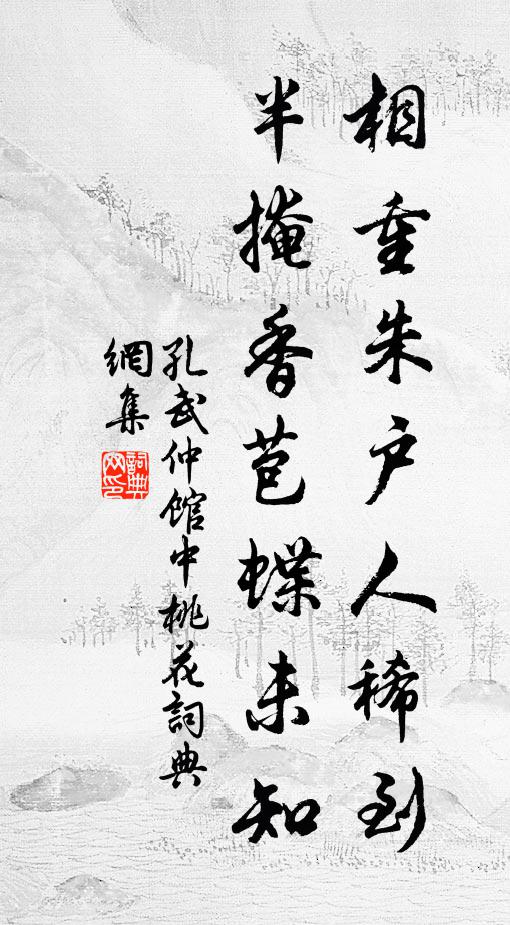 相重朱户人稀到
半掩香苞蝶未知
孔武仲館中桃花詞典
網集
詞典
网印